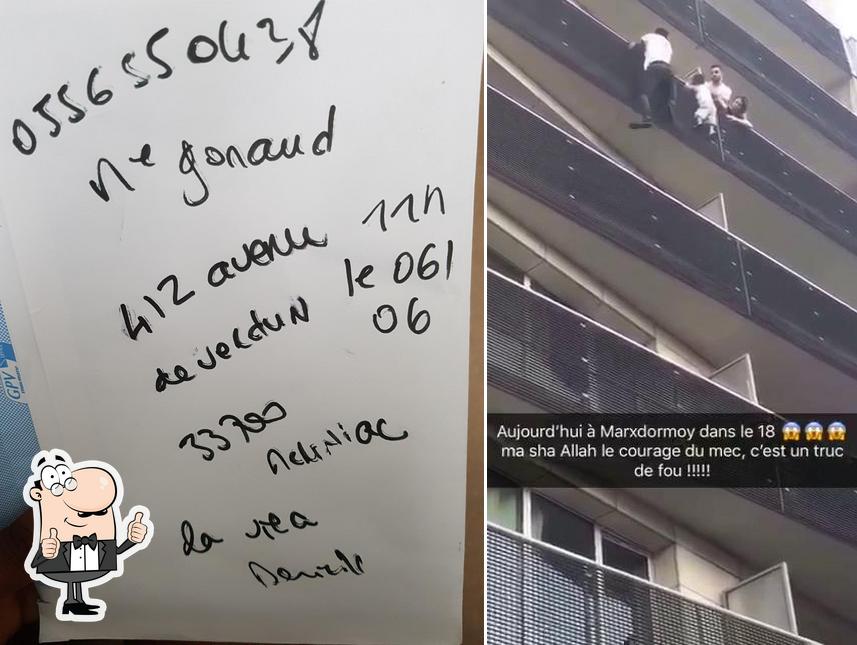 0556550438
Me gonaud
412 avenue 11h
de verdun le 061
06
33700
la
GPV
Aujourd'hui à Marxdormoy dans le 18 😱😱😱
ma sha Allah le courage du mec, c'est un truc
de fou !!!!!